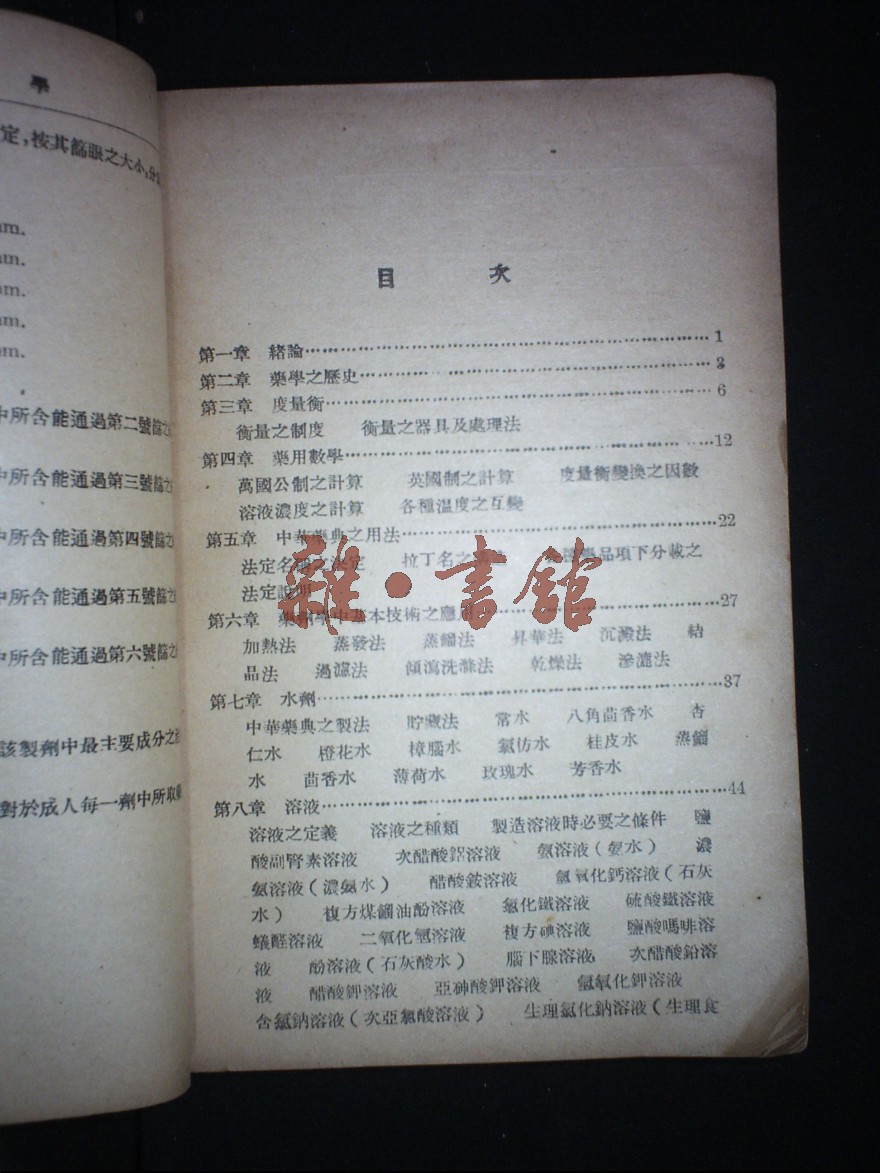 學
定，按其篩眼之大小，分
am.
am.
am.
am.
am.
中所含能通過第二號篩之
中所含能通過第三號篩之
中所含能通過第四號篩之
中所含能通過第五號篩之
中所含能通過第六號篩之
該製劑中最主要成分之
對於成人每一劑中所取
目 次
第一章 緒論 1
第二章 藥學之歷史 3
第三章 度量衡 6
衡量之制度 衡量之器具及處理法
第四章 藥用數學 12
萬國公制之計算 英國制之計算 度量衡變換之因數
溶液濃度之計算 各種溫度之互變
第五章 中華藥典之用法 22
法定名稱之決定 拉丁名之 藥品項下分載之
法定說明
第六章 藥劑學中基本技術之應用 27
加熱法 蒸發法 蒸餾法 昇華法 沉澱法 結
晶法 過濾法 傾瀉洗滌法 乾燥法 滲漉法
第七章 水劑 37
中華藥典之製法 貯藏法 常水 八角茴香水 杏
仁水 橙花水 樟腦水 氯仿水 桂皮水 蒸餾
水 茴香水 薄荷水 玫瑰水 芳香水
第八章 溶液 44
溶液之定義 溶液之種類 製造溶液時必要之條件 鹽
酸副腎素溶液 次醋酸鋁溶液 氨溶液（氨水） 濃
氨溶液（濃氨水） 醋酸銨溶液 氫氧化鈣溶液（石灰
水） 複方煤餾油酚溶液 氯化鐵溶液 硫酸鐵溶液
蟻醛溶液 二氧化氫溶液 複方碘溶液 鹽酸嗎啡溶
液 酚溶液（石灰酸水） 腦下腺溶液 次醋酸鉛溶
液 醋酸鉀溶液 亞砷酸鉀溶液 氫氧化鉀溶液
含氯鈉溶液（次亞氯酸溶液） 生理氯化鈉溶液（生理食
雜·書館